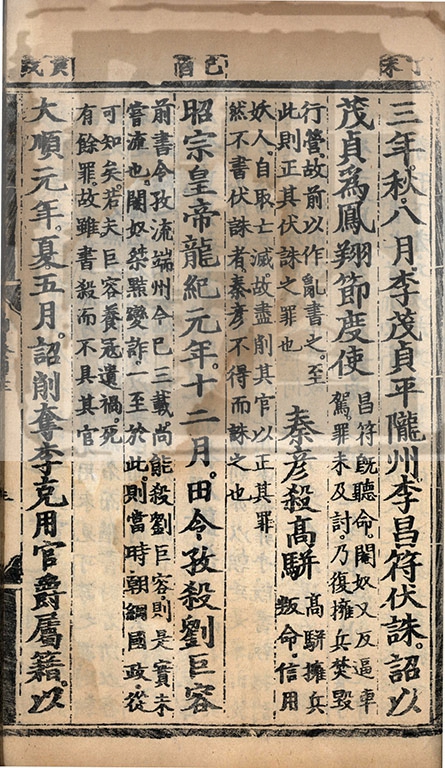 丁未
己酉
庚戌
三年。秋。八月。李茂貞平隴州。李昌符伏誅。詔以
茂貞爲鳳翔節度使
昌符旣聽命。閹奴又反逼車
駕罪未及討。乃復擁兵焚毀
行營。故前以作亂書之。至
此則正其伏誅之罪也
秦彥殺高駢
高駢擁兵
叛命。信用
妖人。自取亡滅。故盡削其官以正其罪
然不書伏誅者。秦彥不得而誅之也
昭宗皇帝龍紀元年。十二月。田令孜殺劉巨容
前書令孜流端州今已三載尚能殺劉巨容。則是實未
嘗流也。閹奴桀黠變詐。一至於此。則當時朝綱國政從
可知矣。若夫巨容養寇遺禍。死
有餘罪。故雖書殺而不具其官
大順元年。夏五月。詔削奪李克用官爵屬籍。以